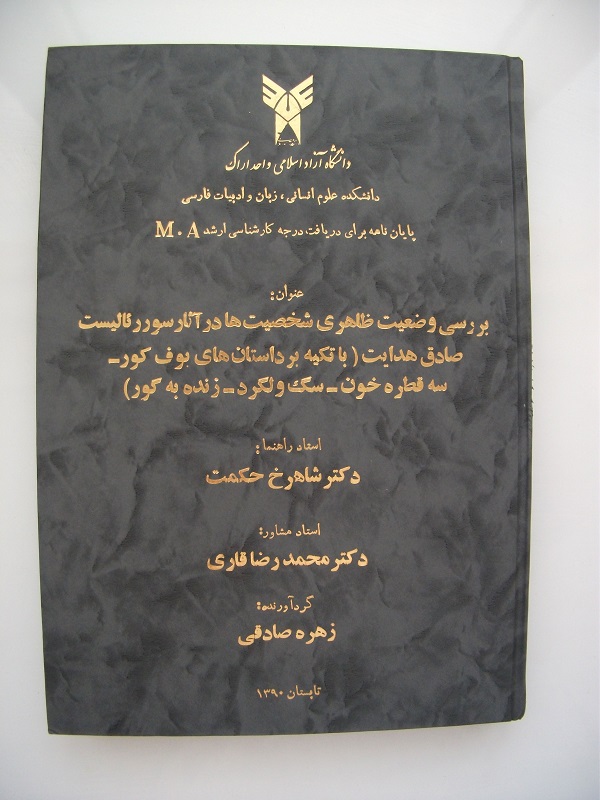 دانشگاه آزاد اسلامی واحد اراک
دانشکده علوم انسانی، زبان و ادبیات فارسی
پایان نامه برای دریافت درجه کارشناسی ارشد M.A
عنوان:
بررسی وضعیت ظاهری شخصیت ها در آثار سوررئالیست
صادق هدایت (با تکیه بر داستان های بوف کور-
سه قطره خون- سگ ولگرد- زنده به گور)
استاد راهنما:
دکتر شاهرخ حکمت
استاد مشاور:
دکتر محمد رضا قاری
گردآورنده:
زهره صادقی
تابستان ۱۳۹۰